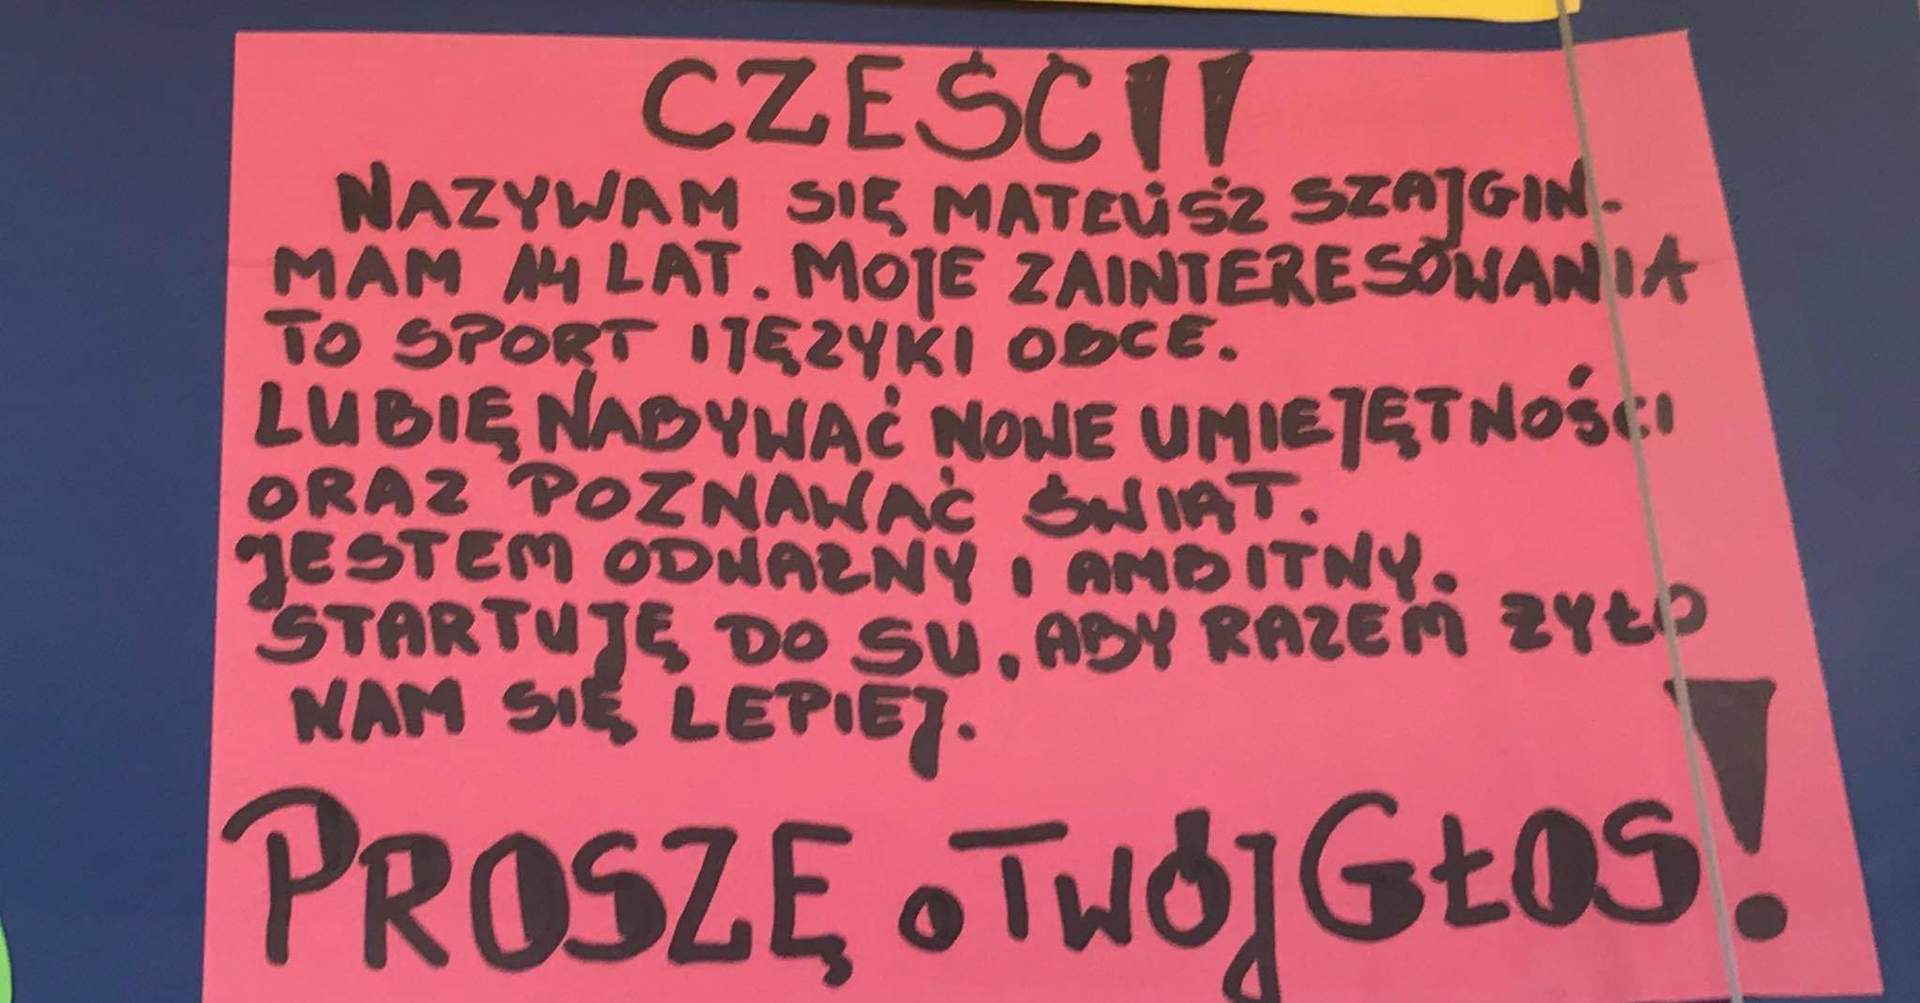 CZEŚĆ!!
NAZYWAM SIĘ MATEUSZ SZAJGIN.
MAM 14 LAT. MOJE ZAINTERESOWANIA
TO SPORT I JĘZYKI OBCE.
LUBIĘ NABYWAĆ NOWE UMIEJĘTNOŚCI
ORAZ POZNAWAĆ ŚWIAT.
JESTEM ODWAŻNY I AMBITNY.
STARTUJĘ DO SU, ABY RAZEM ŻYŁO
NAM SIĘ LEPIEJ.
PROSZĘ O TWÓJ GŁOS!